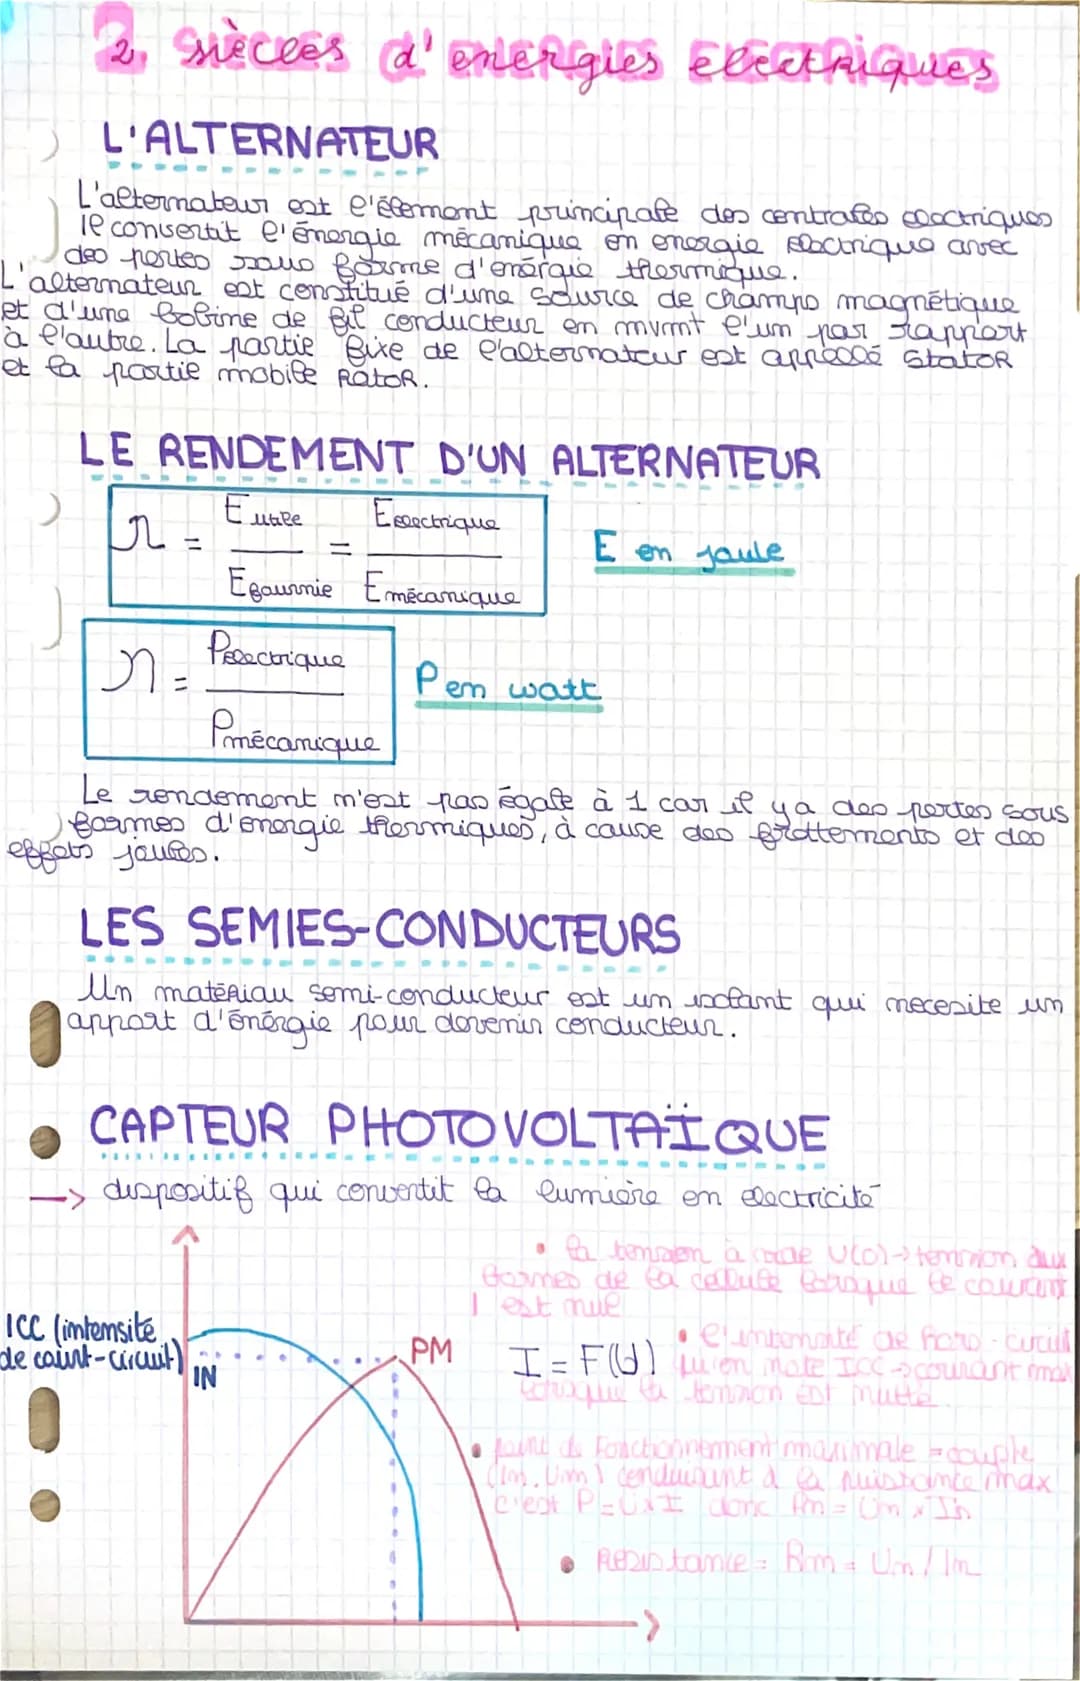 2 siècles d'energies electriques
L'ALTERNATEUR
L'alternateur est l'élement principale des centrales electriques
Il convertit l'énergie mécanique en energie electrique avec
des pertes sous forme d'enérgie thermique.
L'alternateur est constitué d'une source de champs magnétique
et d'une bobine de fil conducteur en mvmnt l'un par rapport
à l'autre. La partie fixe de l'alternateur est appellé StatoR
et la partie mobile RotoR.
LE RENDEMENT D'UN ALTERNATEUR
η = E utile / E fournie = E electrique / E mécanique
E en joule
η = P electrique / P mécanique
P en watt
Le rendement n'est pas égale à 1 car il y a des pertes sous
formes d'énergie thermiques, à cause des frottements et des
effets joules.
LES SEMIES-CONDUCTEURS
Un matériau semi-conducteur est un isolant qui necesite un
apport d'énérgie pour devenir conducteur.
CAPTEUR PHOTOVOLTAÏQUE
→ dispositif qui convertit la lumière en electricité
• la tension à vide U(0) → tension aux
bornes de la cellule lorsque le courant
I est nul
ICC (intensité
de court-circuit)
IN
PM
I = F(U)
• l'intensité de
qu'on note ICC → courant max
lorsque la tension est nulle.
• point de fonctionnement maximale = couple
(Im. Um) conduisant à la puissance max
c'est P = U x I donc Pm = Um x Im
• Resistance = Rm = Um / Im